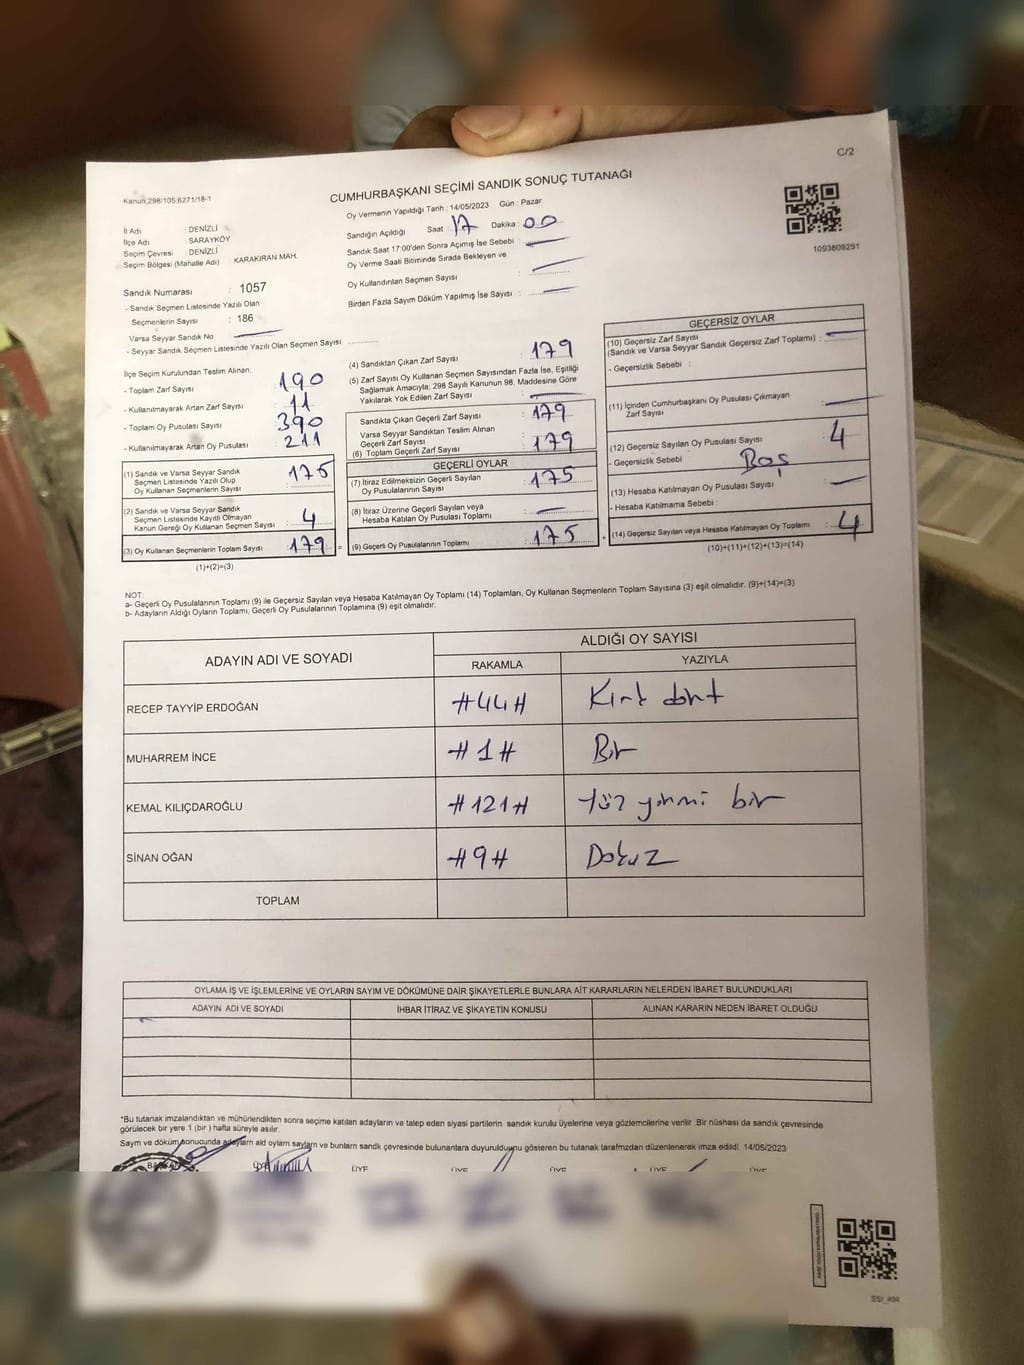 C/2
Kanun 298/105,6271/18-1
CUMHURBAŞKANI SEÇİMİ SANDIK SONUÇ TUTANAĞI
Oy Vermenin Yapıldığı Tarih : 14/05/2023 Gün : Pazar
Sandığın Açıldığı Saat : 17 Dakika : 00
Sandık Saat 17:00'den Sonra Açılmış İse Sebebi :
Oy Verme Saati Bitiminde Sırada Bekleyen ve
Oy Kullandırılan Seçmen Sayısı :
Birden Fazla Sayım Döküm Yapılmış İse Sayısı :
1093609251
İl Adı : DENİZLİ
İlçe Adı : SARAYKÖY
Seçim Çevresi : DENİZLİ
Seçim Bölgesi (Mahalle Adı) KARAKIRAN MAH.
Sandık Numarası : 1057
- Sandık Seçmen Listesinde Yazılı Olan
Seçmenlerin Sayısı : 186
Varsa Seyyar Sandık No
- Seyyar Sandık Seçmen Listesinde Yazılı Olan Seçmen Sayısı:
İlçe Seçim Kurulundan Teslim Alınan:
- Toplam Zarf Sayısı : 190
- Kullanılmayarak Artan Zarf Sayısı : 11
- Toplam Oy Pusulası Sayısı : 390
- Kullanılmayarak Artan Oy Pusulası : 211
(1) Sandık ve Varsa Seyyar Sandık
Seçmen Listesinde Yazılı Olup
Oy Kullanan Seçmenlerin Sayısı : 175
(2) Sandık ve Varsa Seyyar Sandık
Seçmen Listesinde Kayıtlı Olmayan
Kanun Gereği Oy Kullanan Seçmen Sayısı : 4
(3) Oy Kullanan Seçmenlerin Toplam Sayısı : 179
(1)+(2)=(3)
(4) Sandıktan Çıkan Zarf Sayısı : 179
(5) Zarf Sayısı Oy Kullanan Seçmen Sayısından Fazla İse, Eşitliği
Sağlamak Amacıyla; 298 Sayılı Kanunun 98. Maddesine Göre
Yakılarak Yok Edilen Zarf Sayısı :
Sandıkta Çıkan Geçerli Zarf Sayısı : 179
Varsa Seyyar Sandıktan Teslim Alınan
Geçerli Zarf Sayısı
(6) Toplam Geçerli Zarf Sayısı : 179
GEÇERLİ OYLAR
(7) İtiraz Edilmeksizin Geçerli Sayılan
Oy Pusulalarının Sayısı : 175
(8) İtiraz Üzerine Geçerli Sayılan veya
Hesaba Katılan Oy Pusulası Toplamı :
= (9) Geçerli Oy Pusulalarının Toplamı : 175
GEÇERSİZ OYLAR
(10) Geçersiz Zarf Sayısı
(Sandık ve Varsa Seyyar Sandık Geçersiz Zarf Toplamı) :
- Geçersizlik Sebebi :
(11) İçinden Cumhurbaşkanı Oy Pusulası Çıkmayan
Zarf Sayısı :
(12) Geçersiz Sayılan Oy Pusulası Sayısı : 4
- Geçersizlik Sebebi : Boş
(13) Hesaba Katılmayan Oy Pusulası Sayısı :
- Hesaba Katılmama Sebebi :
+ (14) Geçersiz Sayılan veya Hesaba Katılmayan Oy Toplamı : 4
(10)+(11)+(12)+(13)=(14)
NOT:
a- Geçerli Oy Pusulalarının Toplamı (9) ile Geçersiz Sayılan veya Hesaba Katılmayan Oy Toplamı (14) Toplamları, Oy Kullanan Seçmenlerin Toplam Sayısına (3) eşit olmalıdır. (9)+(14)=(3)
b- Adayların Aldığı Oyların Toplamı, Geçerli Oy Pusulalarının Toplamına (9) eşit olmalıdır.
ADAYIN ADI VE SOYADI ALDIĞI OY SAYISI
RAKAMLA YAZIYLA
RECEP TAYYİP ERDOĞAN #44# Kırk dört
MUHARREM İNCE #1# Bir
KEMAL KILIÇDAROĞLU #121# Yüz yirmi bir
SİNAN OĞAN #9# Dokuz
TOPLAM
OYLAMA İŞ VE İŞLEMLERİNE VE OYLARIN SAYIM VE DÖKÜMÜNE DAİR ŞİKAYETLERLE BUNLARA AİT KARARLARIN NELERDEN İBARET BULUNDUKLARI
ADAYIN ADI VE SOYADI İHBAR İTİRAZ VE ŞİKAYETİN KONUSU ALINAN KARARIN NEDEN İBARET OLDUĞU
*Bu tutanak imzalandıktan ve mühürlendikten sonra seçime katılan adayların ve talep eden siyasi partilerin sandık kurulu üyelerine veya gözlemcilerine verilir. Bir nüshası da sandık çevresinde
görülecek bir yere 1 (bir ) hafta süreyle asılır.
Sayım ve döküm sonucunda adayların aldığı oyların sayıları ve bunların sandık çevresinde bulunanlara duyurulduğunu gösteren bu tutanak tarafımızdan düzenlenerek imza edildi. 14/05/2023
BAŞKAN ÜYE ÜYE ÜYE ÜYE ÜYE ÜYE